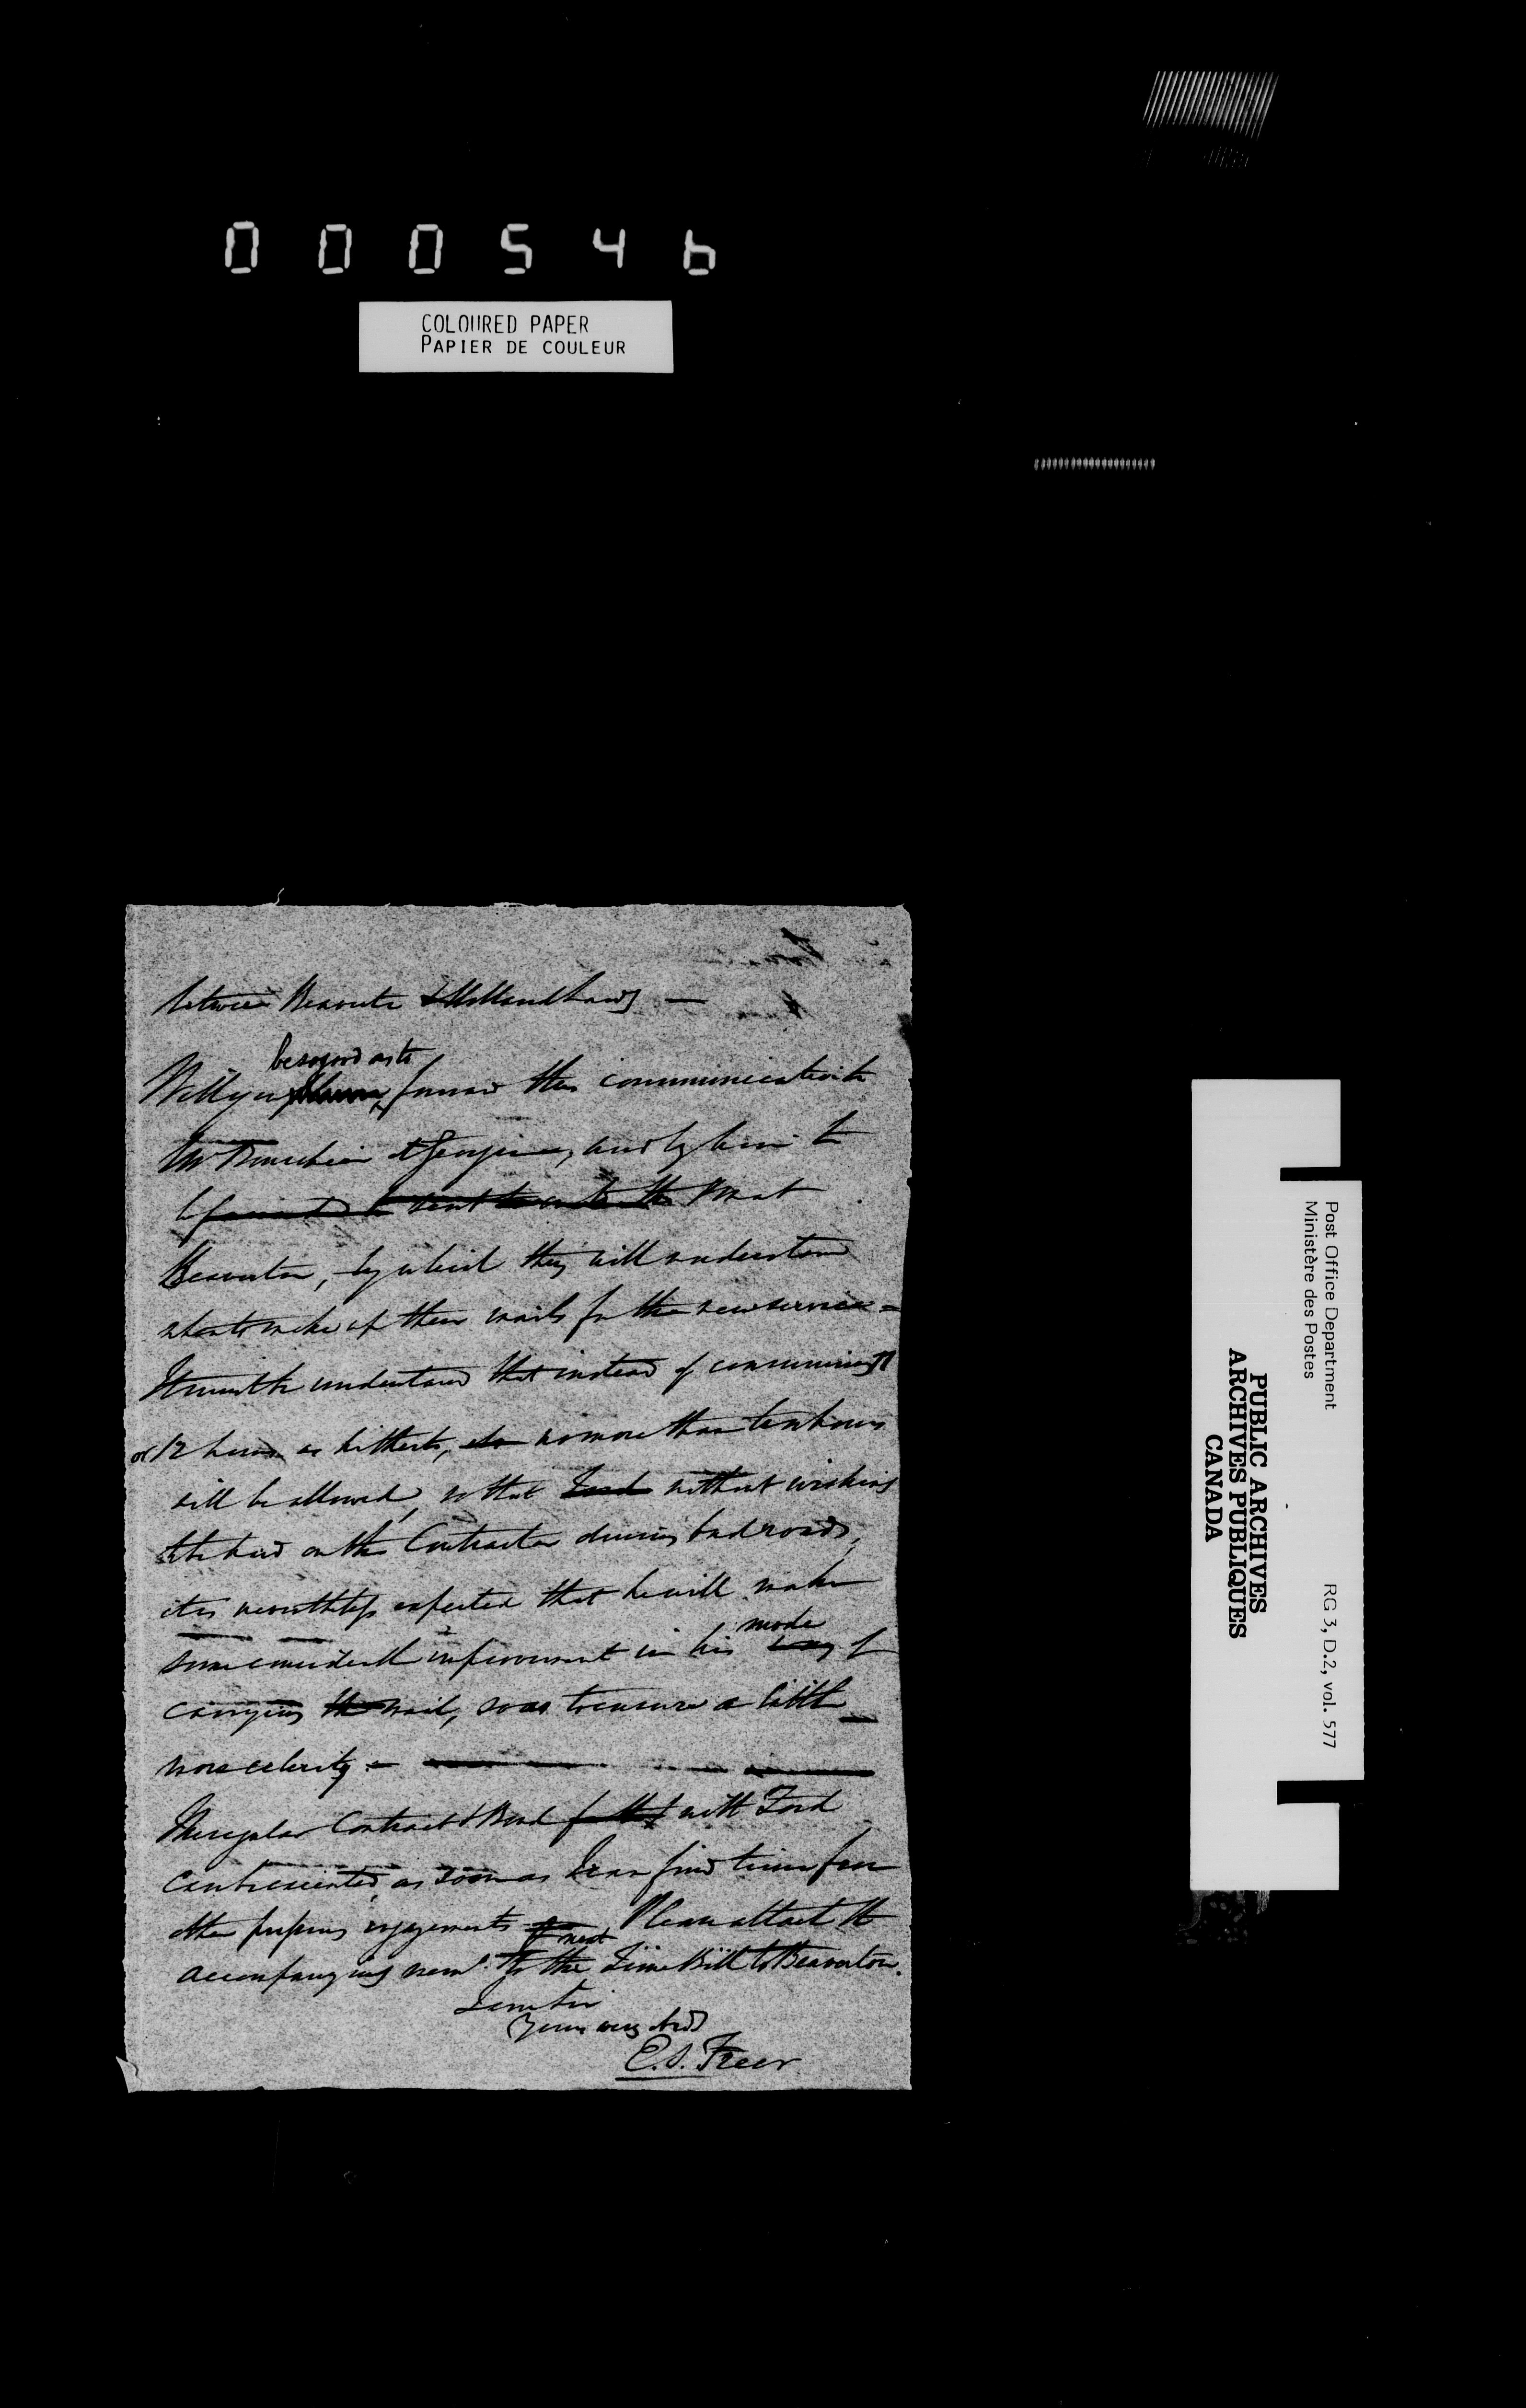 000546
COLOURED PAPER
PAPIER DE COULEUR
between Beaverton & Holland Land'g —
be so good as to
Will you forward this communication to
Mr Bourchier at Georgina, and by him to
be sent P.M at
Beaverton, by which they will understand
when to make up their mails for the new service =
It must be understood that instead of consuming 11
or 12 hours as hitherto, no more than ten hours
will be allowed, so that without wishing
to be hard on the Contractor during bad roads,
it is nevertheless expected that he will make
mode
some considerable improvement in his way of
carrying the mail, so as to ensure a little
more celerity —
The regular Contract & Bond with Ford
can be executed, as soon as I can find time from
other pressing engagements. Please attach the
next
accompanying mem. to the Time Bill to Beaverton.
I am Sir
Yours very
E.S. Freer
Post Office Department
Ministère des Postes
RG 3, D.2, vol. 577
PUBLIC ARCHIVES
ARCHIVES PUBLIQUES
CANADA